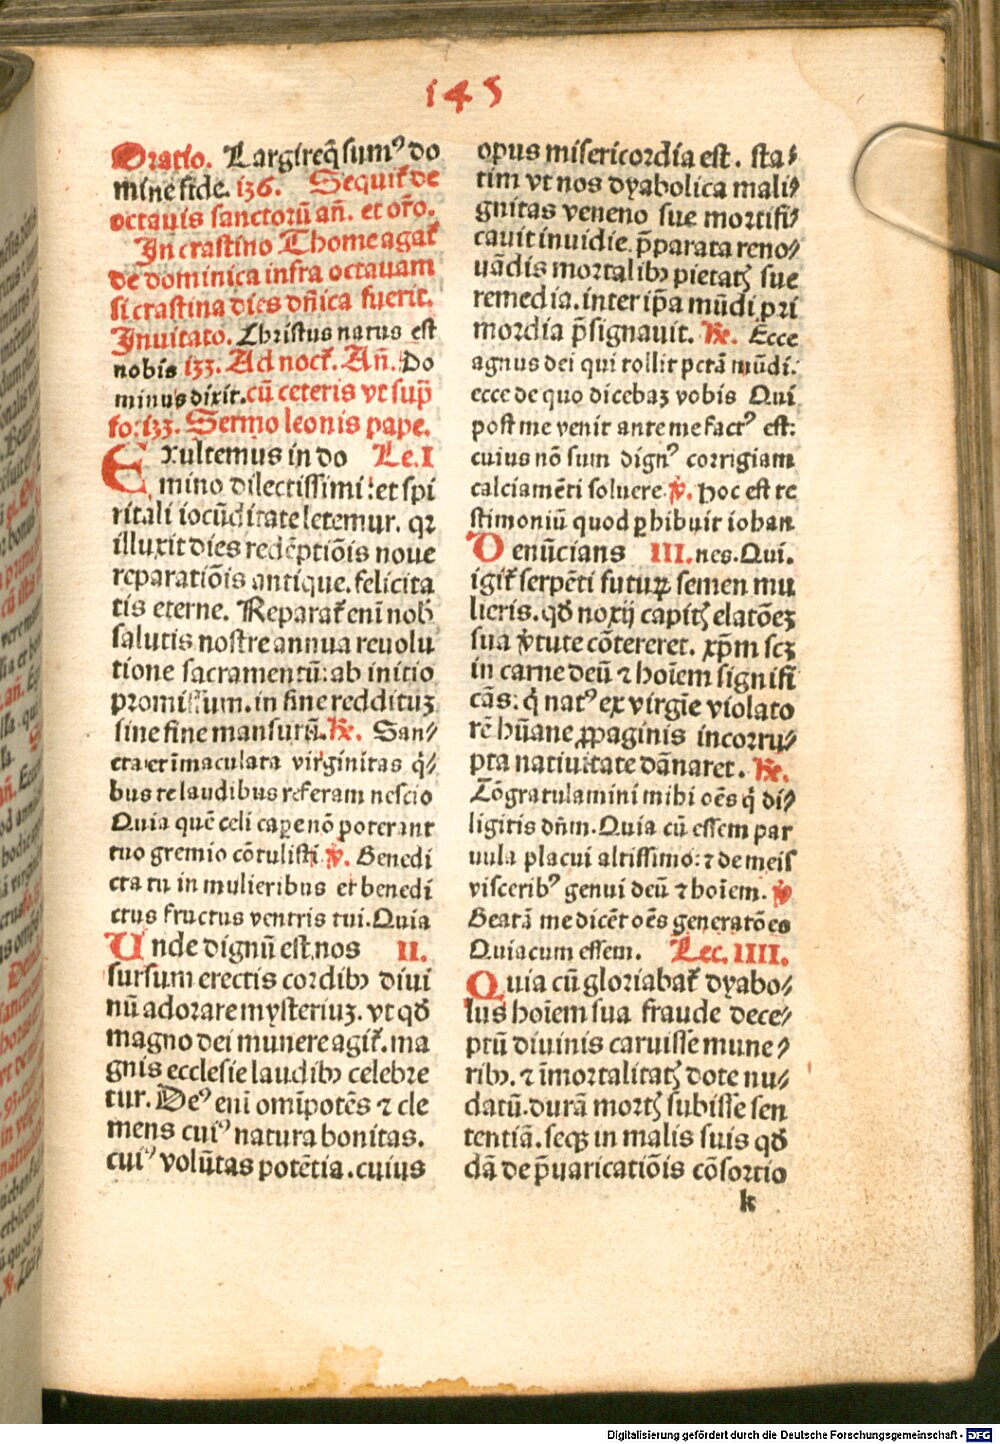 145
Oratio. Largire q̄sumꝰ do
mine fide. 136. Sequit᷑ de
octauis sanctorū añ. et oro.
In crastino Thome agat᷑
de dominica infra octauam
si crastina dies dñica fuerit.
Inuitato. Christus natus est
nobis 133. Ad noct᷑. Añ. Do
minus dixit. cū ceteris vt sup̄
fo. 133. Sermo leonis pape.
Exultemus in do Le. I
mino dilectissimi: et spi
ritali iocūditate letemur. qꝛ
illuxit dies redēptiōis noue
reparatiōis antique. felicita
tis eterne. Reparat᷑ eni nob̄
salutis nostre annua reuolu
tione sacramentū: ab initio
promissum. in fine redditūꝫ
sine fine mansurū. ℞. San⸗
cta et īmaculata virginitas q̇⸗
bus te laudibus referam nescio
Quia quē celi capeꝛe nō poterant
tuo gremio cōtulisti ℣. Benedi
cta tu in mulieribus et benedi
ctus fructus ventris tui. Quia
Unde dignū est nos II.
sursum erectis cordibꝫ diui
nū adorare mysteriuꝫ. vt qđ
magno dei munere agit᷑. ma
gnis ecclesie laudibꝫ celebre
tur. Deꝰ eni omīpotēs ⁊ cle
mens cuiꝰ natura bonitas.
cuiꝰ volūtas potētia. cuius
opus misericordia est. sta⸗
tim vt nos dyabolica mali⸗
gnitas veneno sue mortifi⸗
cauit inuidie. p̄parata reno⸗
uādis mortalibꝫ pietatꝭ sue
remedia. inter ip̄a mūdi pri
mordia p̄signauit. ℞. Ecce
agnus dei qui tollit pctā mūdi:
ecce de quo dicebaꝫ vobis Qui
post me venit ante me factꝰ est:
cuius nō sum dignꝰ corrigiam
calciamēti soluere. ℣. Hoc est te
stimoniū quod ꝑhibuit iohan
Denūcians III. nes. Qui.
igit᷑ serpēti futuꝝ semen mu
lieris. qđ noxij capitꝭ elatōeꝫ
sua v̇tute cōtereret. xp̄m scꝫ
in carne deū ⁊ hoīem signifi
cās: q̇ natꝰ ex virgīe violato
rē hūane ꝓpaginis incorru⸗
pta natiuitate dānaret. ℞.
Cōgratulamini mihi oēs q̇ di⸗
ligitis dñm. Quia cū essem par
uula placui altissimo: ⁊ de meis
visceribꝰ genui deū ⁊ hoīem. ℣
Beatā me dicēt oēs generatōes
Quia cum essem. Lec. IIII.
Quia cū gloriabat᷑ dyabo⸗
lus hoīem sua fraude dece⸗
ptū diuinis caruisse mune⸗
ribꝫ. ⁊ īmortalitatꝭ dote nu⸗
datū. durā mortꝭ subisse sen
tentiā. seqꝫ in malis suis qđ
dā de p̄uaricatiōis cōsortio
k
Digitalisierung gefördert durch die Deutsche Forschungsgemeinschaft - DFG